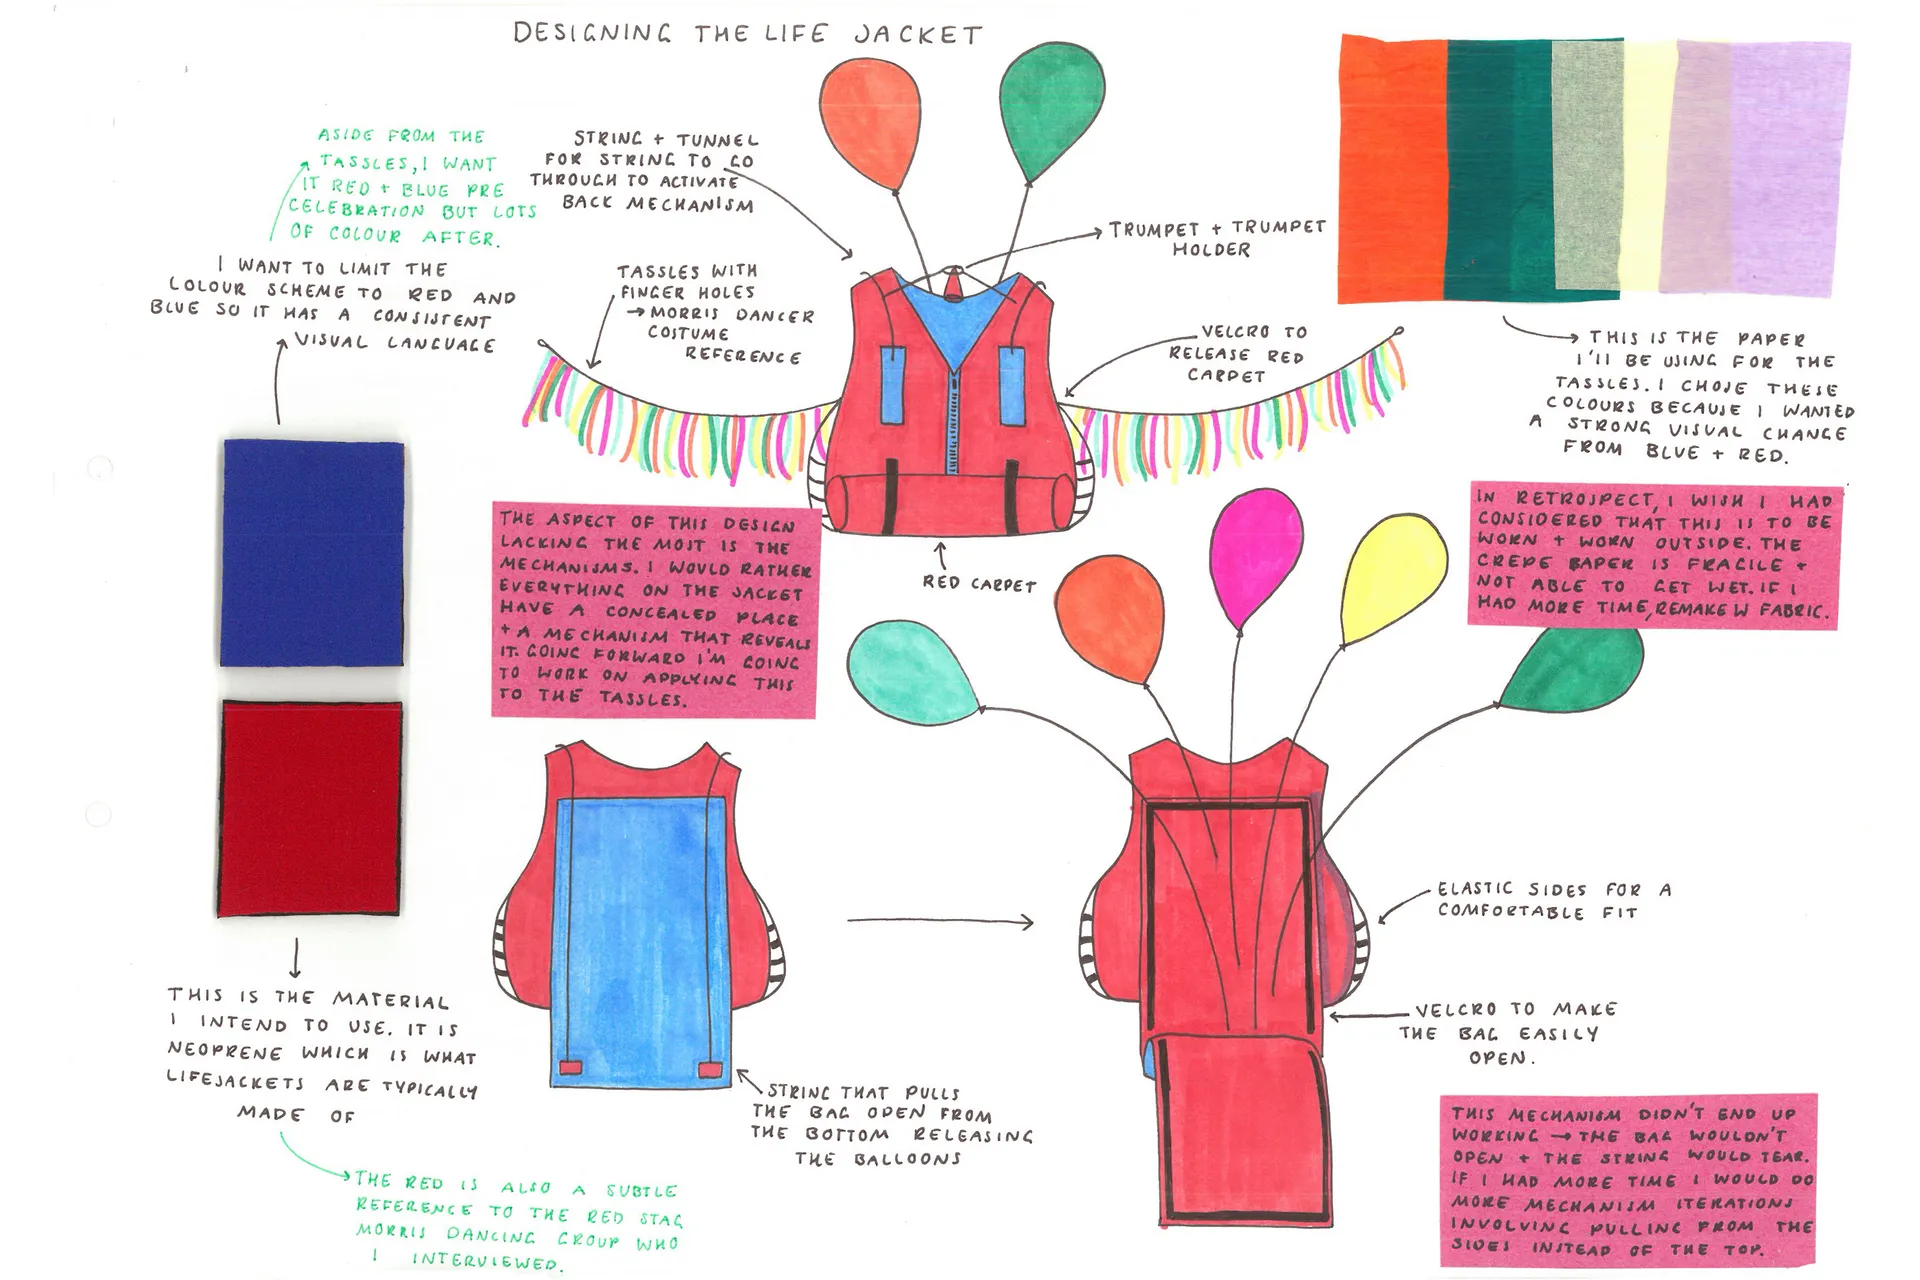 DESIGNING THE LIFE JACKET
ASIDE FROM THE
TASSLES, I WANT
IT RED + BLUE PRE
CELEBRATION BUT LOTS
OF COLOUR AFTER.
I WANT TO LIMIT THE
COLOUR SCHEME TO RED AND
BLUE SO IT HAS A CONSISTENT
VISUAL LANGUAGE
STRING + TUNNEL
FOR STRING TO GO
THROUGH TO ACTIVATE
BACK MECHANISM
TASSLES WITH
FINGER HOLES
→ MORRIS DANCER
COSTUME
REFERENCE
TRUMPET + TRUMPET
HOLDER
VELCRO TO
RELEASE RED
CARPET
THIS IS THE PAPER
I'LL BE USING FOR THE
TASSLES. I CHOSE THESE
COLOURS BECAUSE I WANTED
A STRONG VISUAL CHANGE
FROM BLUE + RED.
THE ASPECT OF THIS DESIGN
LACKING THE MOST IS THE
MECHANISMS. I WOULD RATHER
EVERYTHING ON THE JACKET
HAVE A CONCEALED PLACE
+ A MECHANISM THAT REVEALS
IT. GOING FORWARD I'M GOING
TO WORK ON APPLYING THIS
TO THE TASSLES.
RED CARPET
IN RETROSPECT, I WISH I HAD
CONSIDERED THAT THIS IS TO BE
WORN + WORN OUTSIDE. THE
CREPE PAPER IS FRAGILE +
NOT ABLE TO GET WET. IF I
HAD MORE TIME, REMAKE W FABRIC.
THIS IS THE MATERIAL
I INTEND TO USE. IT IS
NEOPRENE WHICH IS WHAT
LIFEJACKETS ARE TYPICALLY
MADE OF
THE RED IS ALSO A SUBTLE
REFERENCE TO THE RED STAG
MORRIS DANCING GROUP WHO
I INTERVIEWED.
STRING THAT PULLS
THE BAG OPEN FROM
THE BOTTOM RELEASING
THE BALLOONS
ELASTIC SIDES FOR A
COMFORTABLE FIT
VELCRO TO MAKE
THE BAG EASILY
OPEN.
THIS MECHANISM DIDN'T END UP
WORKING → THE BAG WOULDN'T
OPEN + THE STRING WOULD TEAR.
IF I HAD MORE TIME I WOULD DO
MORE MECHANISM ITERATIONS
INVOLVING PULLING FROM THE
SIDES INSTEAD OF THE TOP.